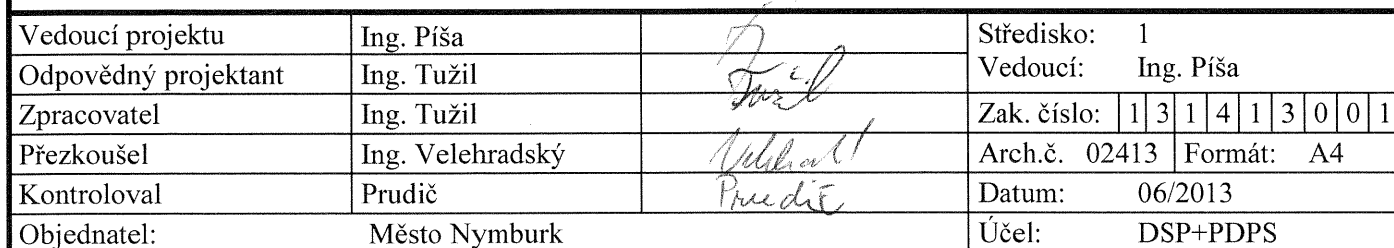 Vedoucí projektu Ing. Píša Středisko: 1
Odpovědný projektant Ing. Tužil Vedoucí: Ing. Píša
Zpracovatel Ing. Tužil Zak. číslo: 1 3 1 4 1 3 0 0 1
Přezkoušel Ing. Velehradský Arch.č. 02413 Formát: A4
Kontroloval Prudič Prudič Datum: 06/2013
Objednatel: Město Nymburk Účel: DSP+PDPS